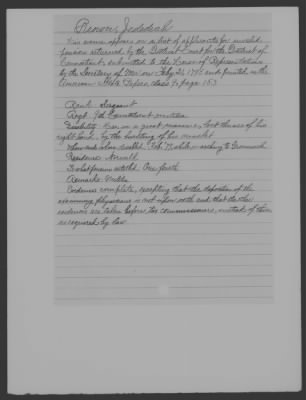 His name appears on a list of applicants for invalid
pension returned by the District Court for the District of
Connecticut, submitted to the House of Representatives
by the Secretary of War on Feby 21, 1795 and printed in the
American State Papers, class 9, page
Rank Sergeant
Regt. 9th Connecticut militia
Disability Has in a great measure, lost the use of his
right hand, by the bursting of his musket
When and where disabled Feb. marching to Greenwich
Residence Norwalk
To what pension entitled One fourth
Remarks Militia
Evidence complete, excepting that the deposition of the
examining physicians is not upon oath and that the other
evidences are taken before two commissioners, instead of three
as required by law